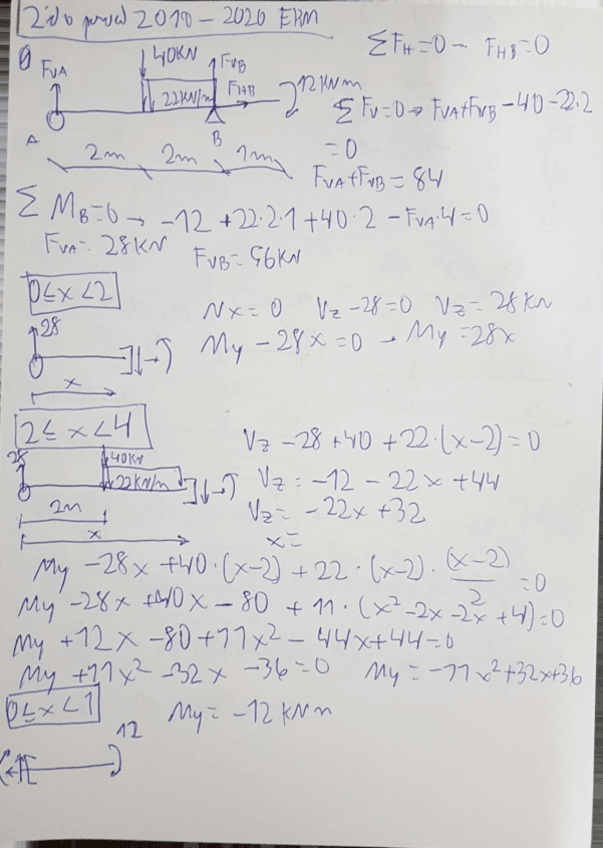 2ª do prova 2010 – 2020 EHM
ΣFH=0 – FHB=0
FVA
40KN
FVB
22KN/m
FHB
12KNm
ΣFV=0 → FVA+FVB – 40 – 22.2
=0
A
B
2m
2m
1m
FVA+FVB = 84
ΣMB=0 → -12 +22·2·1 +40·2 – FVA·4=0
FVA= 28KN
FVB= 56KN
0≤x<2
Nx=0 Vz-28=0 Vz=28KN
28
My – 28x=0 → My=28x
x
2≤x<4
Vz -28 +40 +22·(x-2)=0
28
40KN
22KN/m
Vz = -12 – 22x +44
2m
Vz= -22x +32
x
x=
My -28x +40·(x-2) +22·(x-2)·(x-2)/2 =0
My -28x +40x – 80 + 11·(x²-2x-2x+4)=0
My +12x -80 +11x² – 44x+44=0
My +11x² -32x -36=0 My = -11x²+32x+36
0≤x<1
My= -12KNm
12